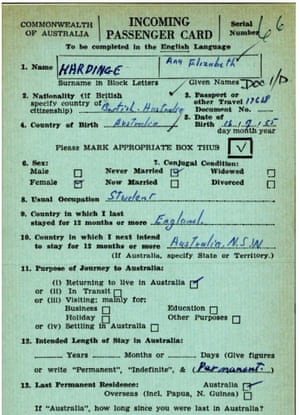 COMMONWEALTH OF AUSTRALIA
INCOMING PASSENGER CARD
Serial Number 66
To be completed in the English Language
1. Name HARDINGE Ann Elizabeth
Surname in Block Letters Given Names
DOC I/D
2. Nationality (if British specify country of citizenship) British, Australia
3. Passport or other Travel Document No.
4. Country of Birth Australia
5. Date of Birth
day month year
PLEASE MARK APPROPRIATE BOX THUS ✓
6. Sex:
Male
Female ✓
7. Conjugal Condition:
Never Married ✓ Widowed
Now Married Divorced
8. Usual Occupation Student
9. Country in which I last stayed for 12 months or more England
10. Country in which I next intend to stay for 12 months or more Australia, N.S.W
(If Australia, specify State or Territory.)
11. Purpose of Journey to Australia:
(i) Returning to live in Australia ✓
or (ii) In Transit
or (iii) Visiting; mainly for:
Business Education
Holiday Other Purposes
or (iv) Settling in Australia
12. Intended Length of Stay in Australia:
Years Months or Days (Give figures
or write "Permanent", "Indefinite", & (Permanent.)
13. Last Permanent Residence: Australia ✓
Overseas (Incl. Papua, N. Guinea)
If "Australia", how long since you were last in Australia?